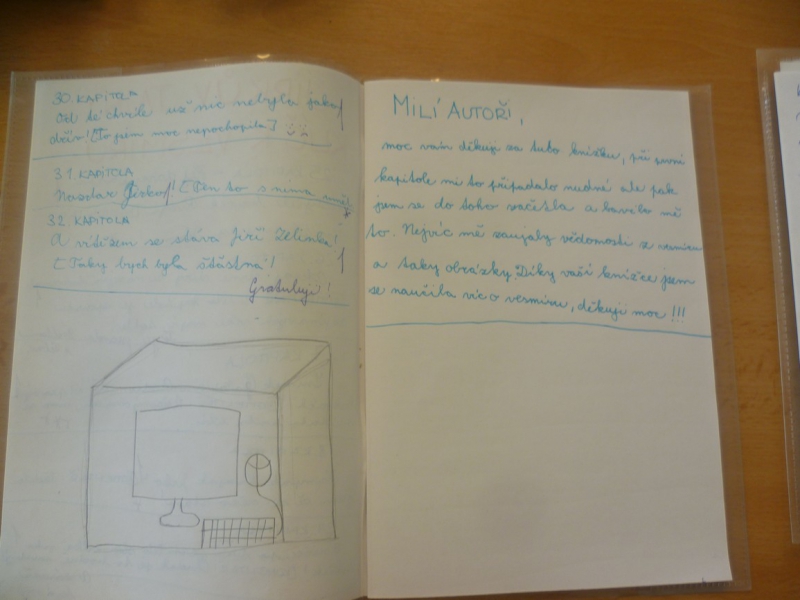 30. KAPITOLA
Od té chvíle už nic nebylo jako
dřív! (To jsem moc nepochopila)
31. KAPITOLA
Nazdar Jirko! (Ten to s nima
32. KAPITOLA
A vítězem se stává Jiří Zelinka!
(Taky bych byla šťastná!
Gratuluji!
MILÍ AUTOŘI,
moc vám děkuji za tuto knížku, při první
kapitole mi to připadalo nudné ale pak
jsem se do toho začetla a bavilo mě
to. Nejvíc mě zaujaly vědomosti z vesmíru
a taky obrázky. Díky vaší knížce jsem
se naučila víc o vesmíru, děkuji moc!!!